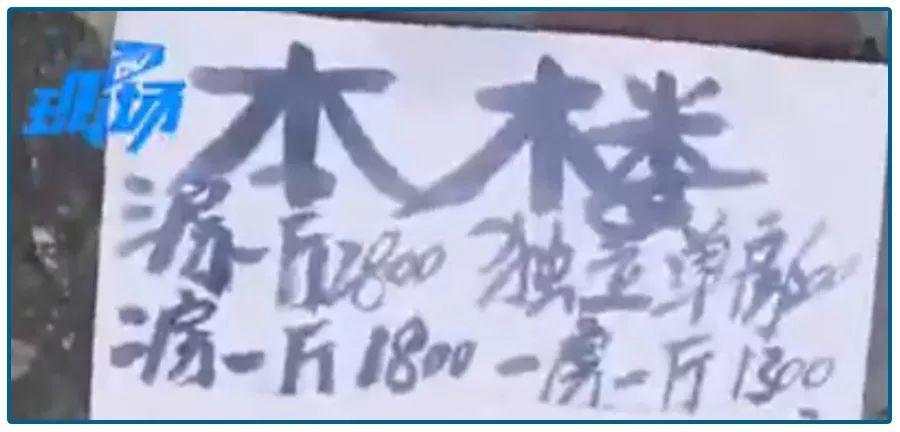 现场
本楼
三房一厅2800 独立单房
二房一厅1800 一房一厅1300